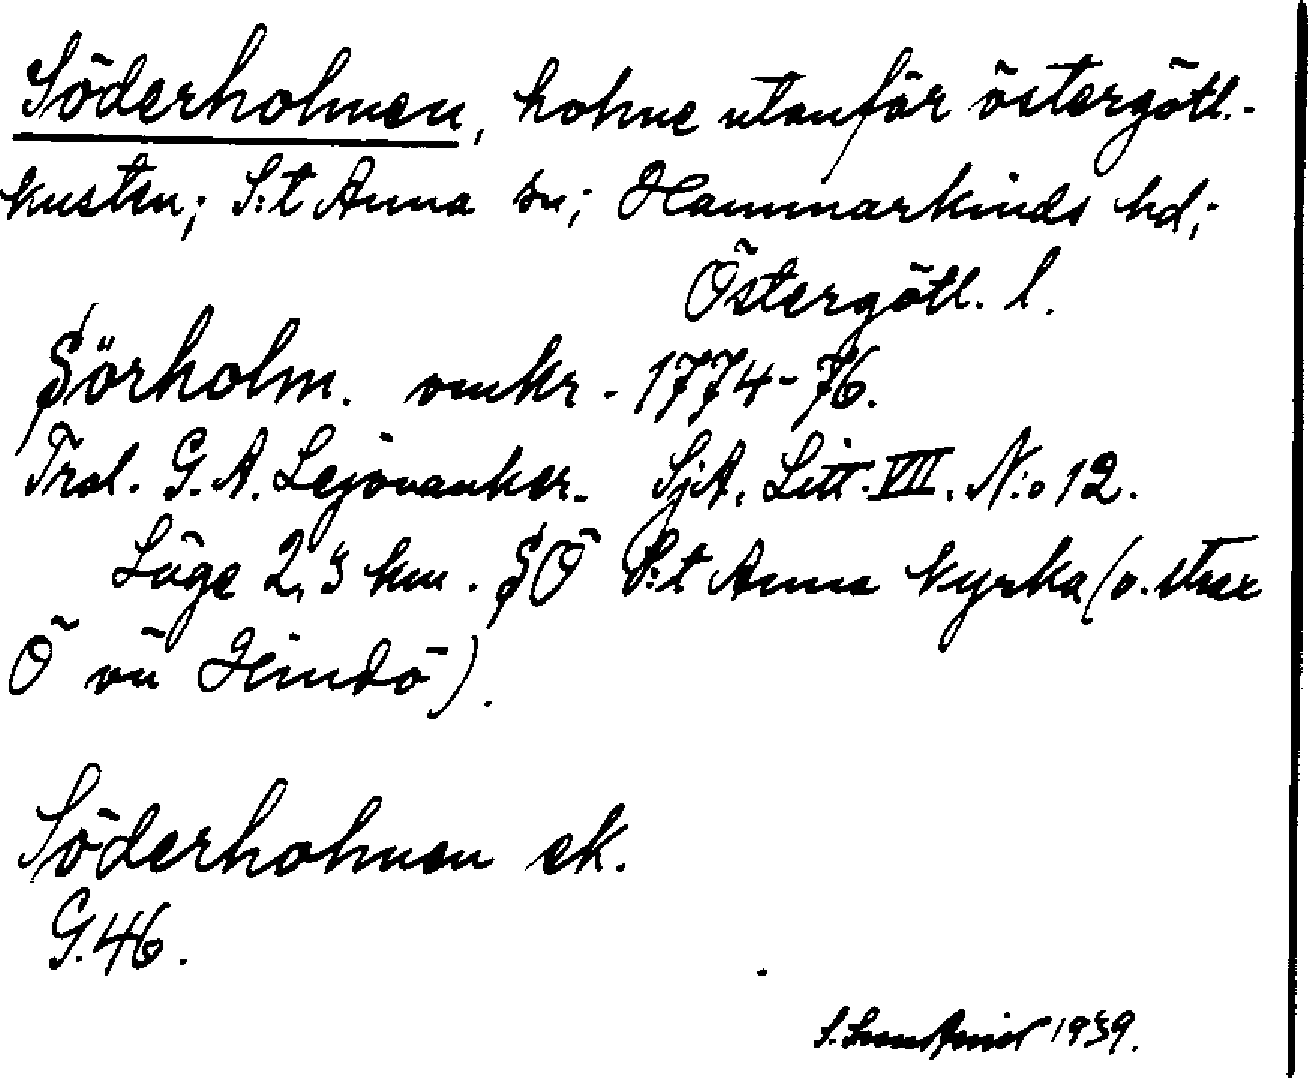 Söderholmen, holme utanför östergötl.-
kusten; S:t Anna sn; Hammarkinds hd;
Östergötl. l.
Sörholm. omkr. 1774-76.
Trol. G. A. Lejonanker. SjA. Litt. VIII. N:o 12.
Läge 2,3 km. SÖ S:t Anna kyrka (o. strax
Ö om Hindö).
Söderholmen ek.
G.46.
1939.